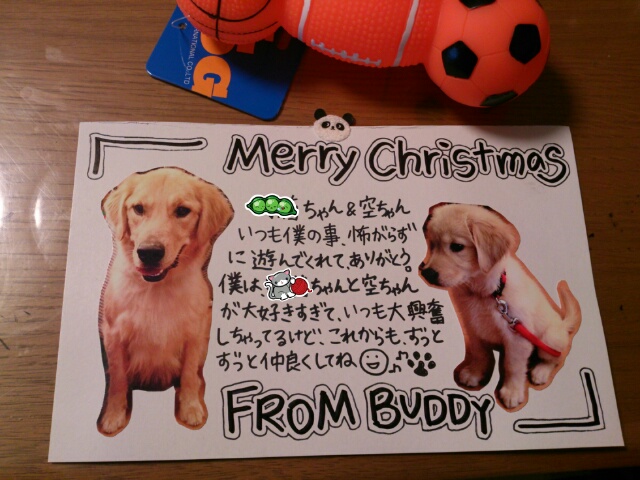 NATIONAL CO.,LTD
G
Merry Christmas
ちゃん&空ちゃん
いつも僕の事、怖がらず
に遊んでくれて、ありがとう。
僕は、ちゃんと空ちゃん
が大好きすぎて、いつも大興奮
しちゃってるけど、これからも、ずっと
ずっと仲良くしてね
FROM BUDDY